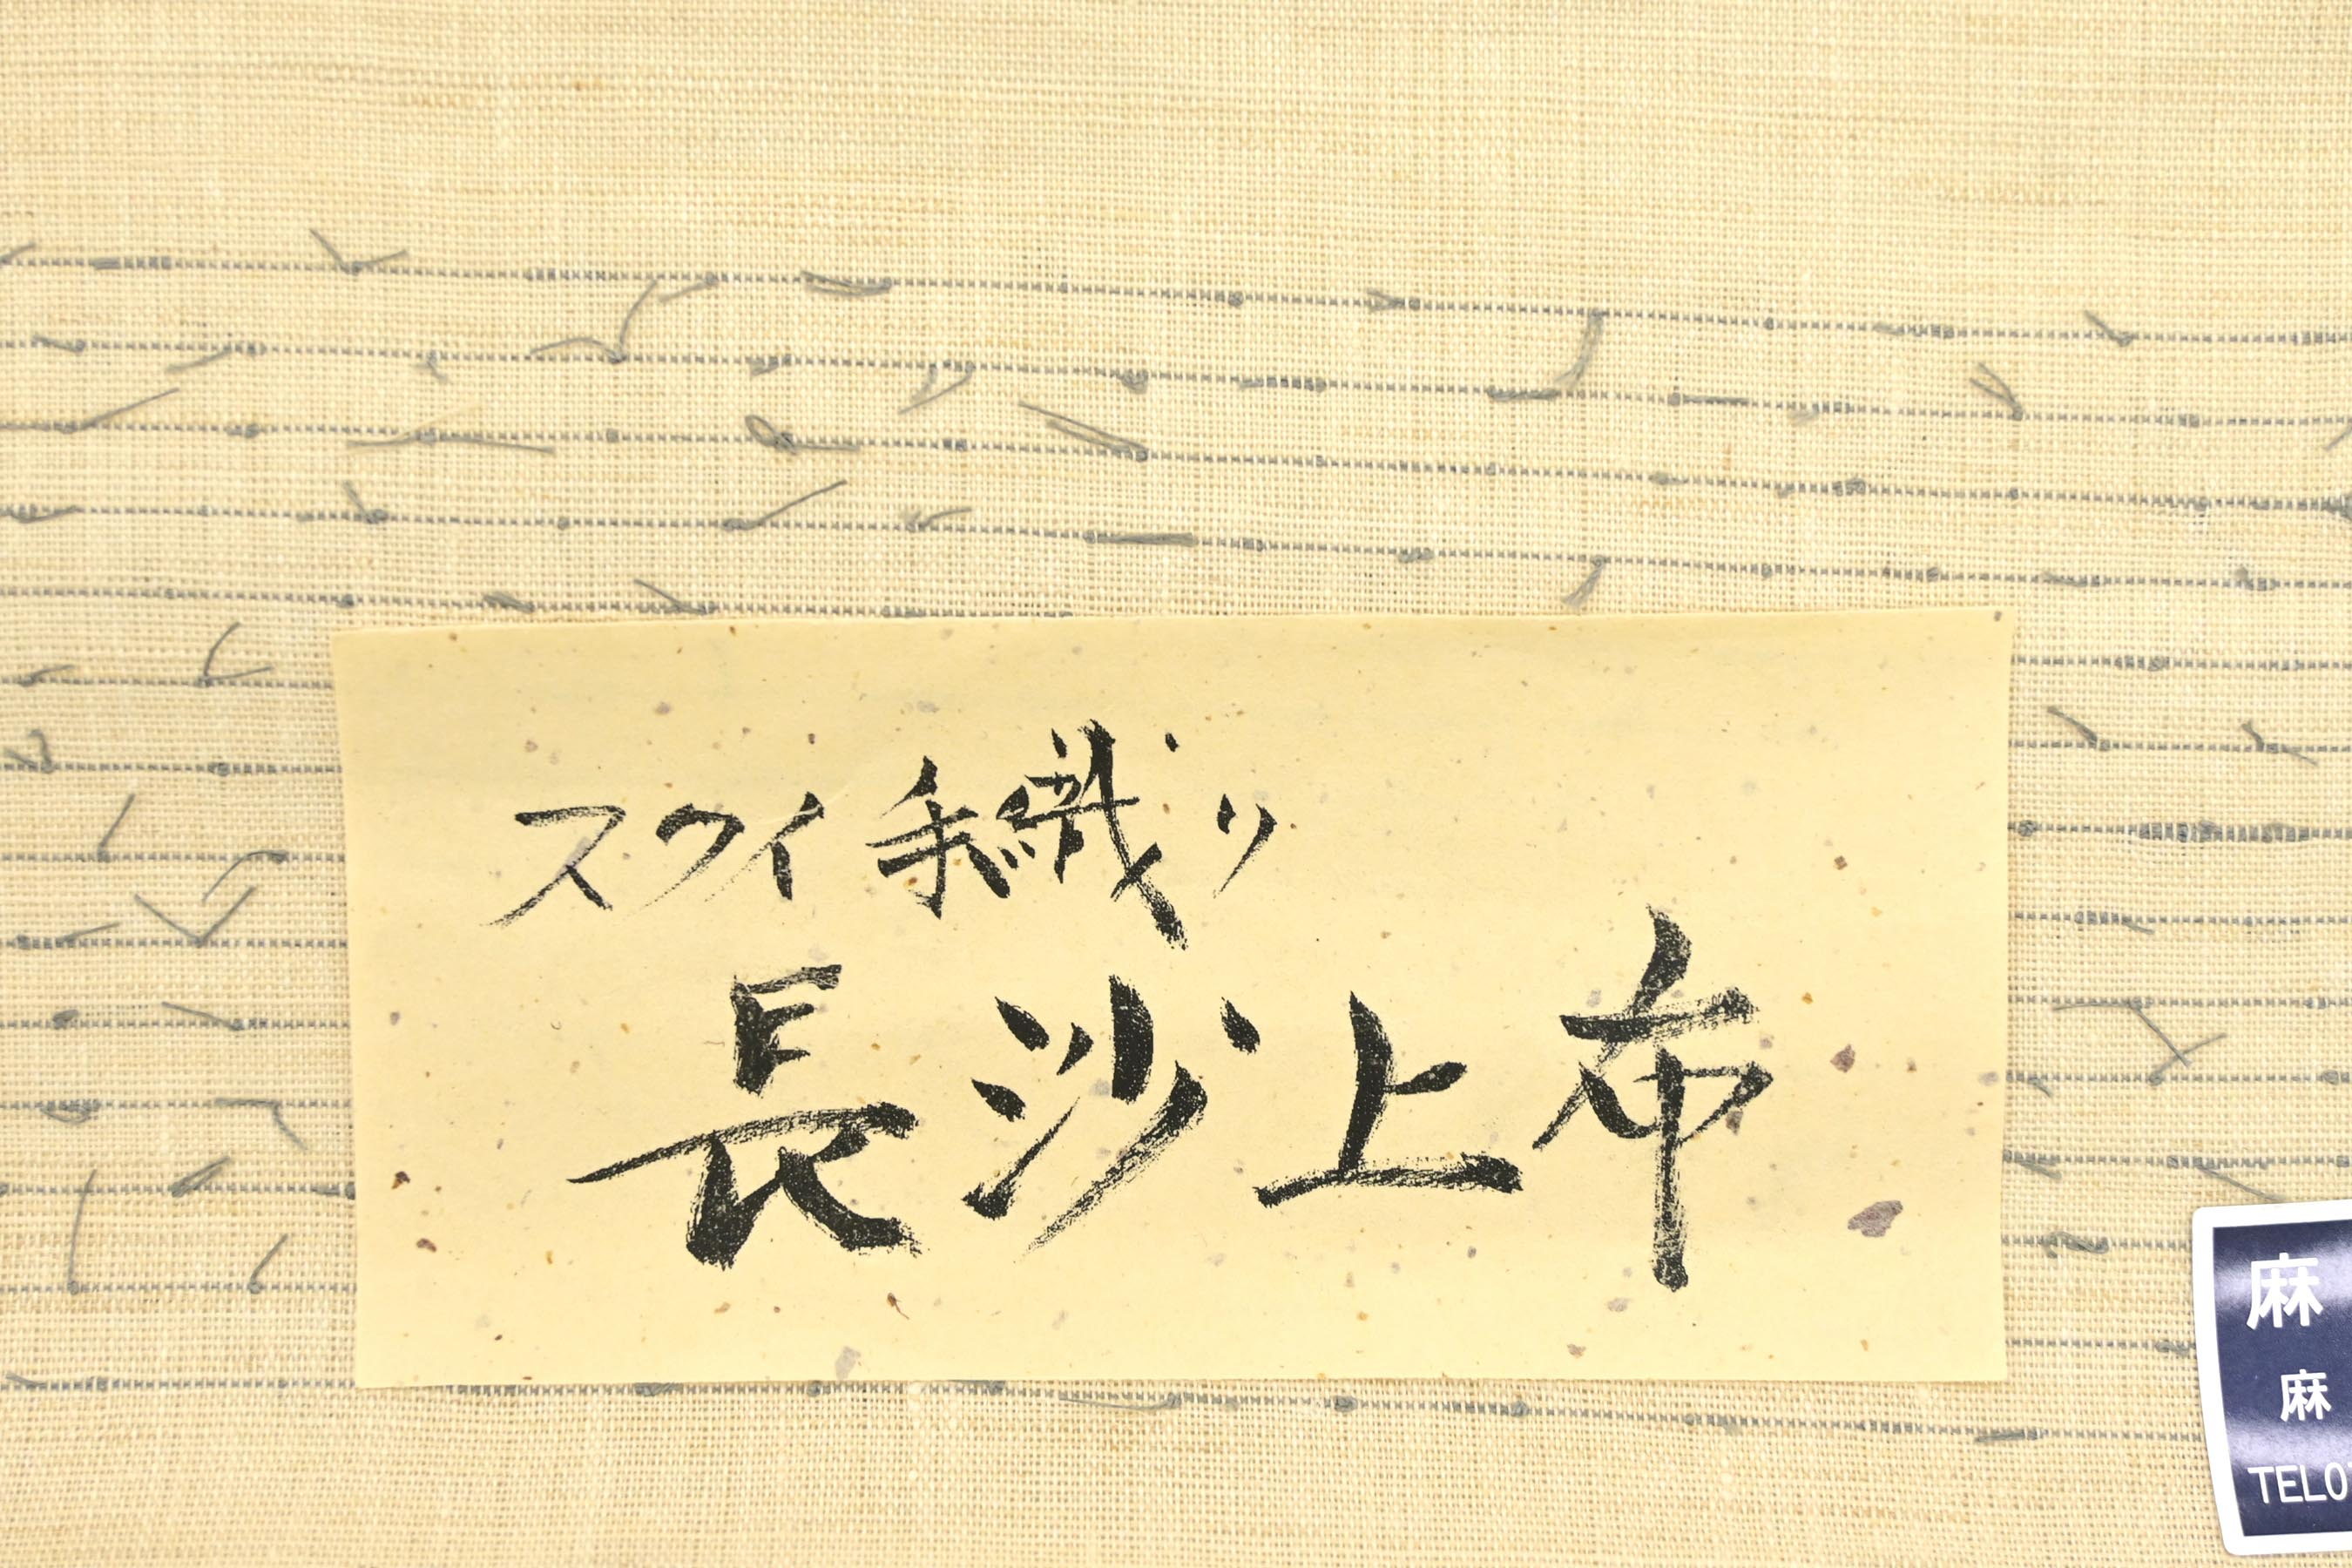 スクイ手織り
長沙上布
麻
麻
TEL0